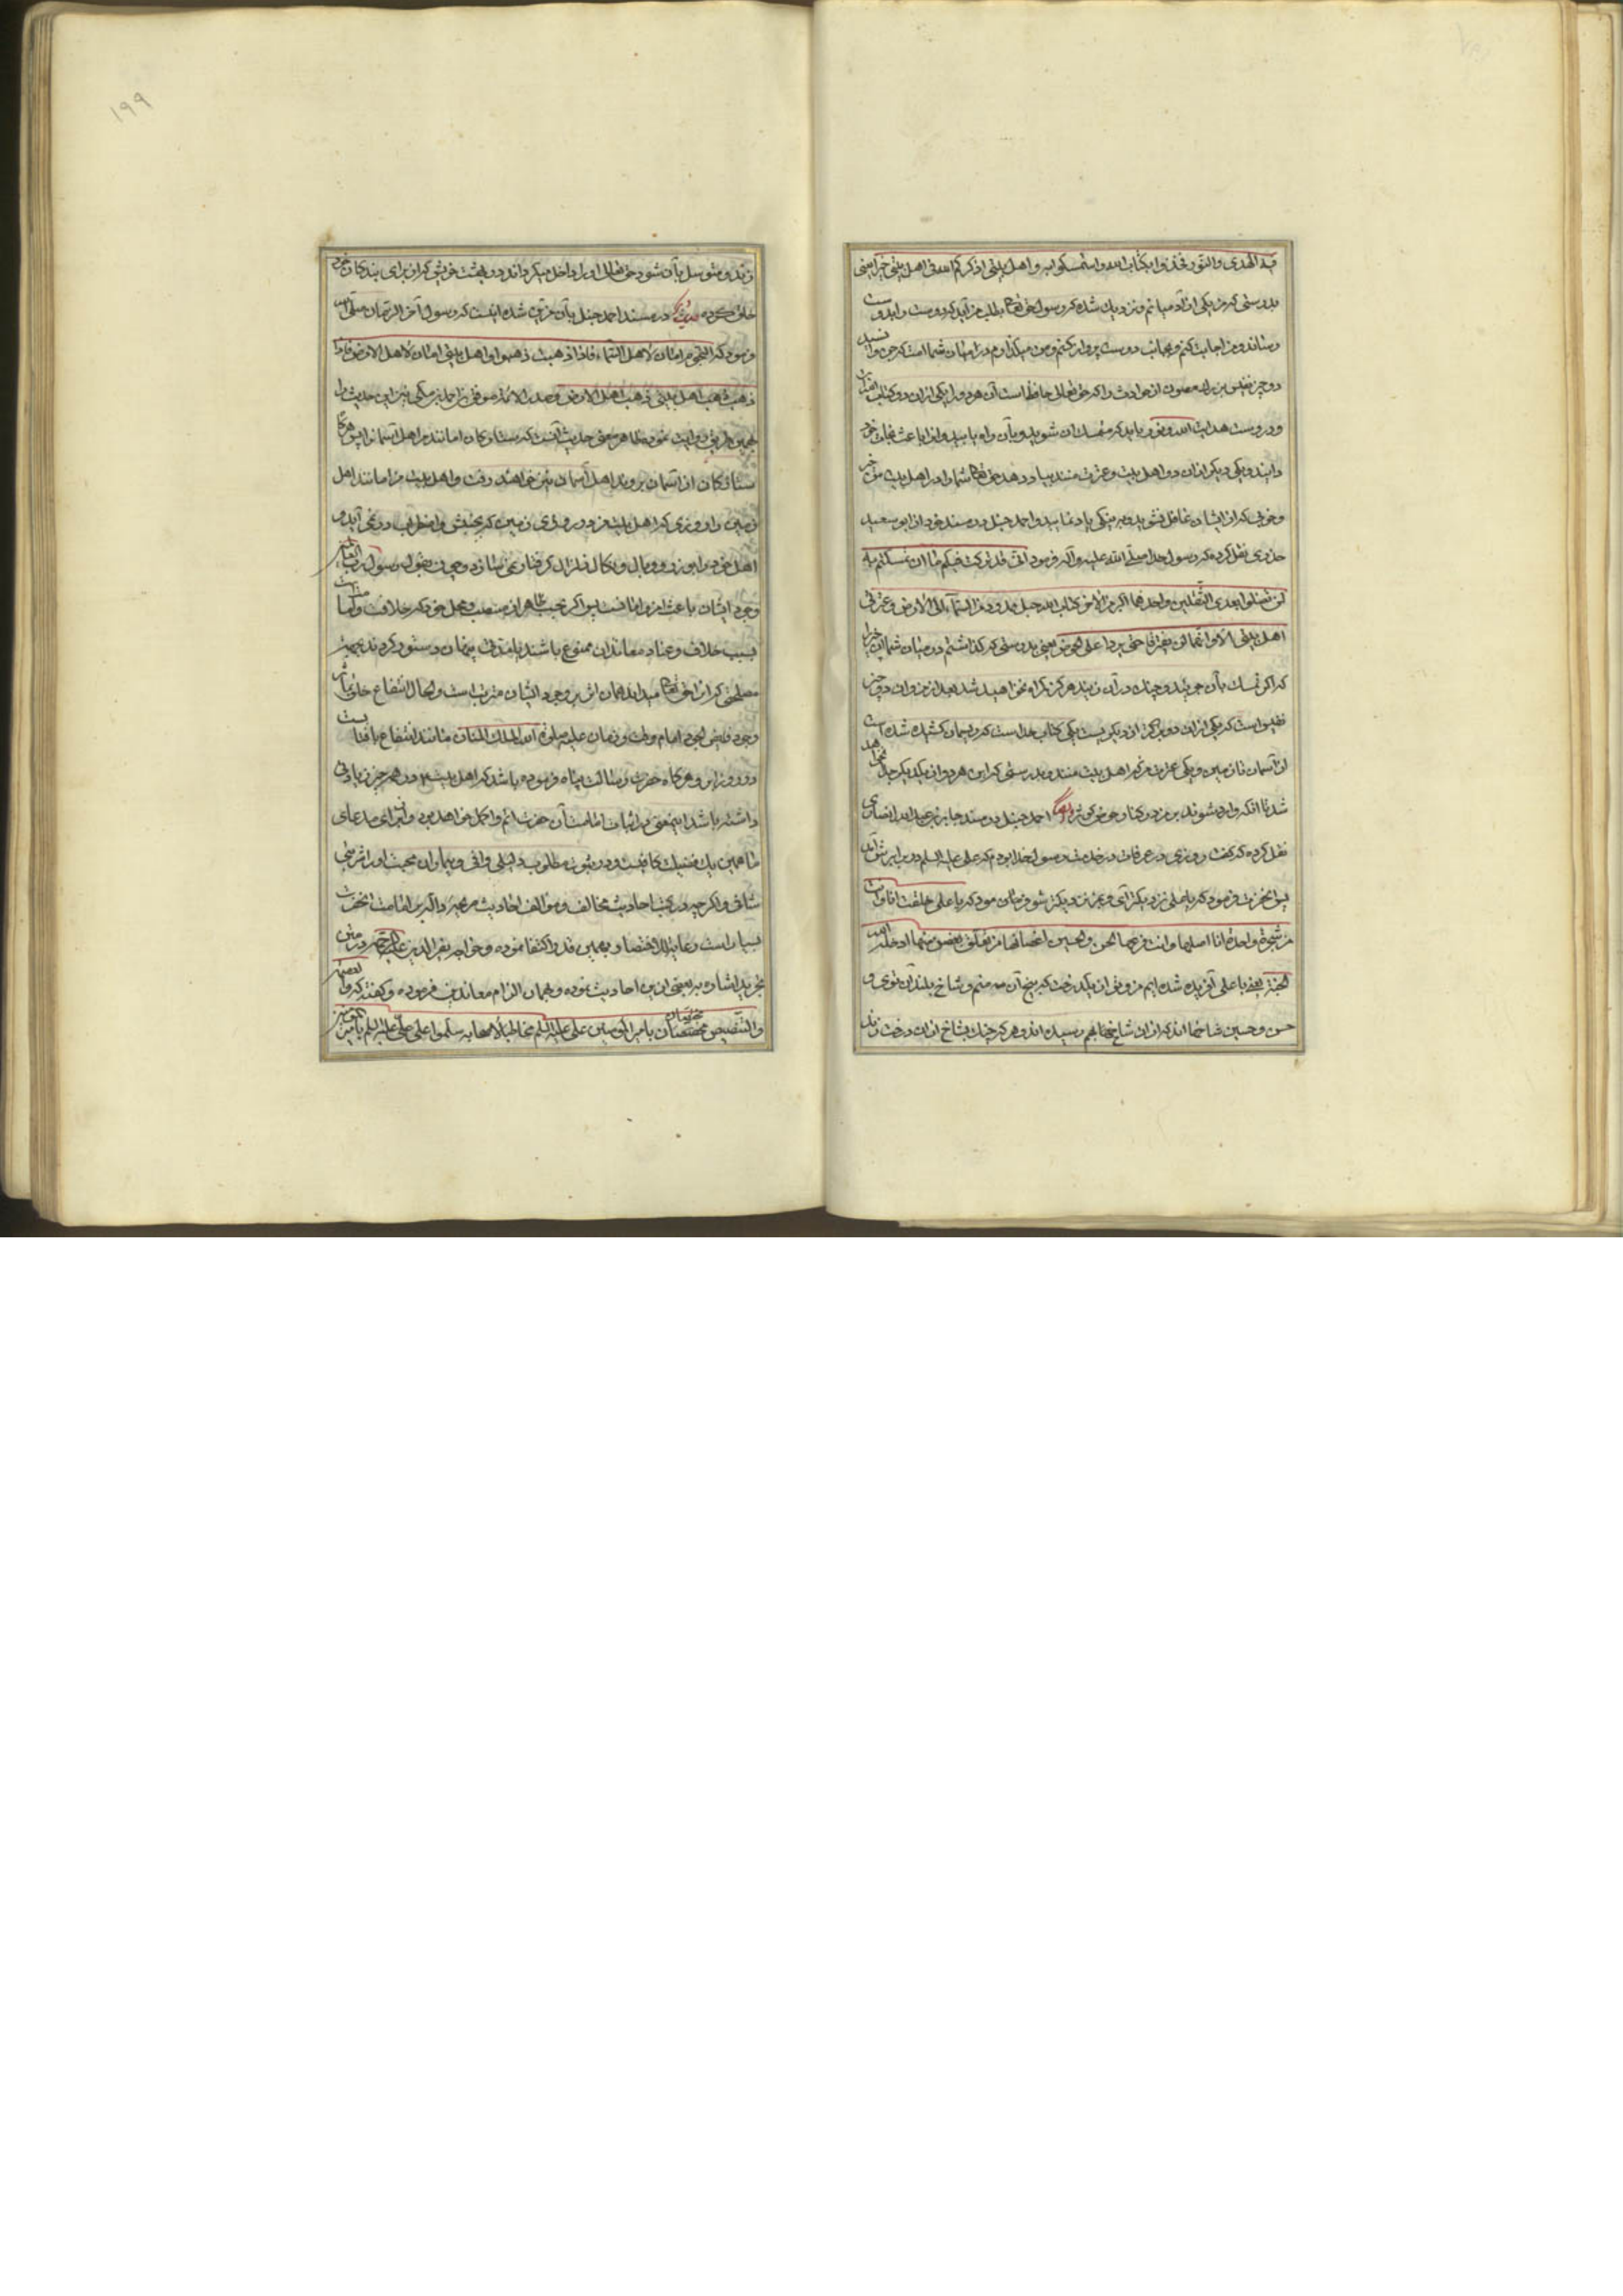 فیه الهدی والنور فخذوا بکتاب الله واستمسکوا به و اهل بیتی اذکرکم الله فی اهل بیتی خیرا یعنی
بدرستی که من یکی از آدمیانم و نزدیک شده که رسول حق تعالی بطلب من آید که دوست
و من اجابت کنم و بجانب دوست پرواز کنم و من میگذارم در میان شما امت که جن و
دو چیز نفیس بزرگ مصون از حوادث و اگر حق تعالی حافظ است آن هر دو را یکی از آن دو کتاب
و در وست هدایت الله و نور باید که متمسک آن شوید و بآن راه یابید و آنرا باعث نجات خود
دانید و یکی دیگر از آن دو اهل بیت و عترت منند بیاد دهد حق تعالی شما را در اهل بیت من خیر
و خوبی که از ایشان غافل نشوید و به نیکی یاد نمایید و احمد حنبل در مسند خود از ابو سعید
خدری نقل کرده که رسول خدا صلی الله علیه وآله فرمود انی قد ترکت فیکم ما ان تمسکتم به
لن تضلوا بعدی الثقلین واحدهما اکبر من الاخر کتاب الله حبل ممدود من السماء الی الارض وعترتی
اهل بیتی الا وانهما لن یفترقا حتی یردا علی الحوض یعنی بدرستی که گذاشتم در میان شما آن چیز را
که اگر تمسک بآن جوئید و چنک در آن زنید هرگز گمراه نخواهید شد بعد از من و آن دو چیز
نفیس است که یکی از آن دو بزرگتر از دیگریست یکی کتاب خداست که ریسمان کشیده شده است
از آسمان تا زمین و یکی عترت من که اهل بیت منند و بدرستی که این هر دو از یکدیگر جدا نخواهند
شد تا آنکه وارد شوند بر من در کنار حوض کوثر دیگر احمد حنبل در مسند جابر بن عبد الله انصاری
نقل کرده که گفت روزی در عرفات در خدمت رسول خدا بودم که علی علیه السلم در برابرش آمد
پس آنحضرت فرمود که یا علی نزدیکتر آی و بمن نزدیکتر شو و فرمود که یا علی خلقت انا وانت
من شجرة واحدة انا اصلها وانت فرعها والحسن والحسین اغصانها من تعلق بغصن منها ادخله الله
الجنة یعنی یا علی آفریده شده ایم من و تو از یکدرخت که بیخ آن منم و شاخ بلند آن توئی و
حسن و حسین شاخهااند که از آن شاخها بهم رسیده اند و هر که چنک بشاخ از آن درخت زند
زند و متوسل بآن شود حق تعالی او را داخل میگرداند در بهشت خوشی که از برای بندکان خود
خلق کرده حدیث دیگر در مسند احمد حنبل بآن مزیّن شده اینست که رسول آخر الزمان صلی الله
فرمود که النجوم امان لاهل السماء فاذا ذهبت ذهبوا و اهل بیتی امان لاهل الارض فاذا
ذهب اهل بیتی ذهب اهل الارض و صدر الائمه موفق بن احمد مکی نیز این حدیث را
بهمین طریق روایت نموده ظاهر معنی حدیث آنست که ستارکان امانند مر اهل آسمان را پس هرگاه
ستارکان از آسمان بروند اهل آسمان نیز خواهند رفت و اهل بیت من امانند اهل
زمین را و روزی که اهل بیت من در روی زمین که بجنبش و اضطراب در می آید و
اهل خود را بوزر و وبال و نکال و زلزال گرفتار می سازد و چون بقول رسول رب العالمین
وجود ایشان باعث امن و امانست پس اگر بحسب ظاهر از منصب و محل خود که خلافت و امامت
بسبب خلاف و عناد معاندان ممنوع باشند یا مدتی پنهان و مستور کردند بجهت
مصلحتی که از حق تعالی میداند همان اثر بر وجود ایشان مترتب است و الحال انتفاع خلق بآثار
وجود فایض الجود امام وقت و زمان علیه صلوة الله الملک المنان مانند انتفاع بآفتابست
در روز ابر و هرگاه حضرت رسالت پناه فرموده باشد که اهل بیتم در هر چیز زیادتی
داشته باشد اینمعنی در اثبات امامت آن حضرت اتم و اکمل خواهد بود و از برای مدعای
ما همین یک فضیلت کافیست و در ثبوت مطلوب دلیلی وافی و بیماران محبت او را شربتی
شافی و اگر چه در کتب احادیث مخالف و مؤالف احادیث صریحه داله بر امامت آنحضرت
بسیار است رعایة للاختصار بهمین قدر اکتفا نموده و خواجه نصیر الدین علیه الرحمه در متن
تجرید اشاره ببعضی از این احادیث نموده و بهمان الزام معاندین فرموده و گفته که والعصمة
والتنصیص مختصتان بامیر المؤمنین علی علیه السلم مخاطبا لاصحابه سلموا علی علی علیه السلم بامرة المؤمنین
۱۹۹